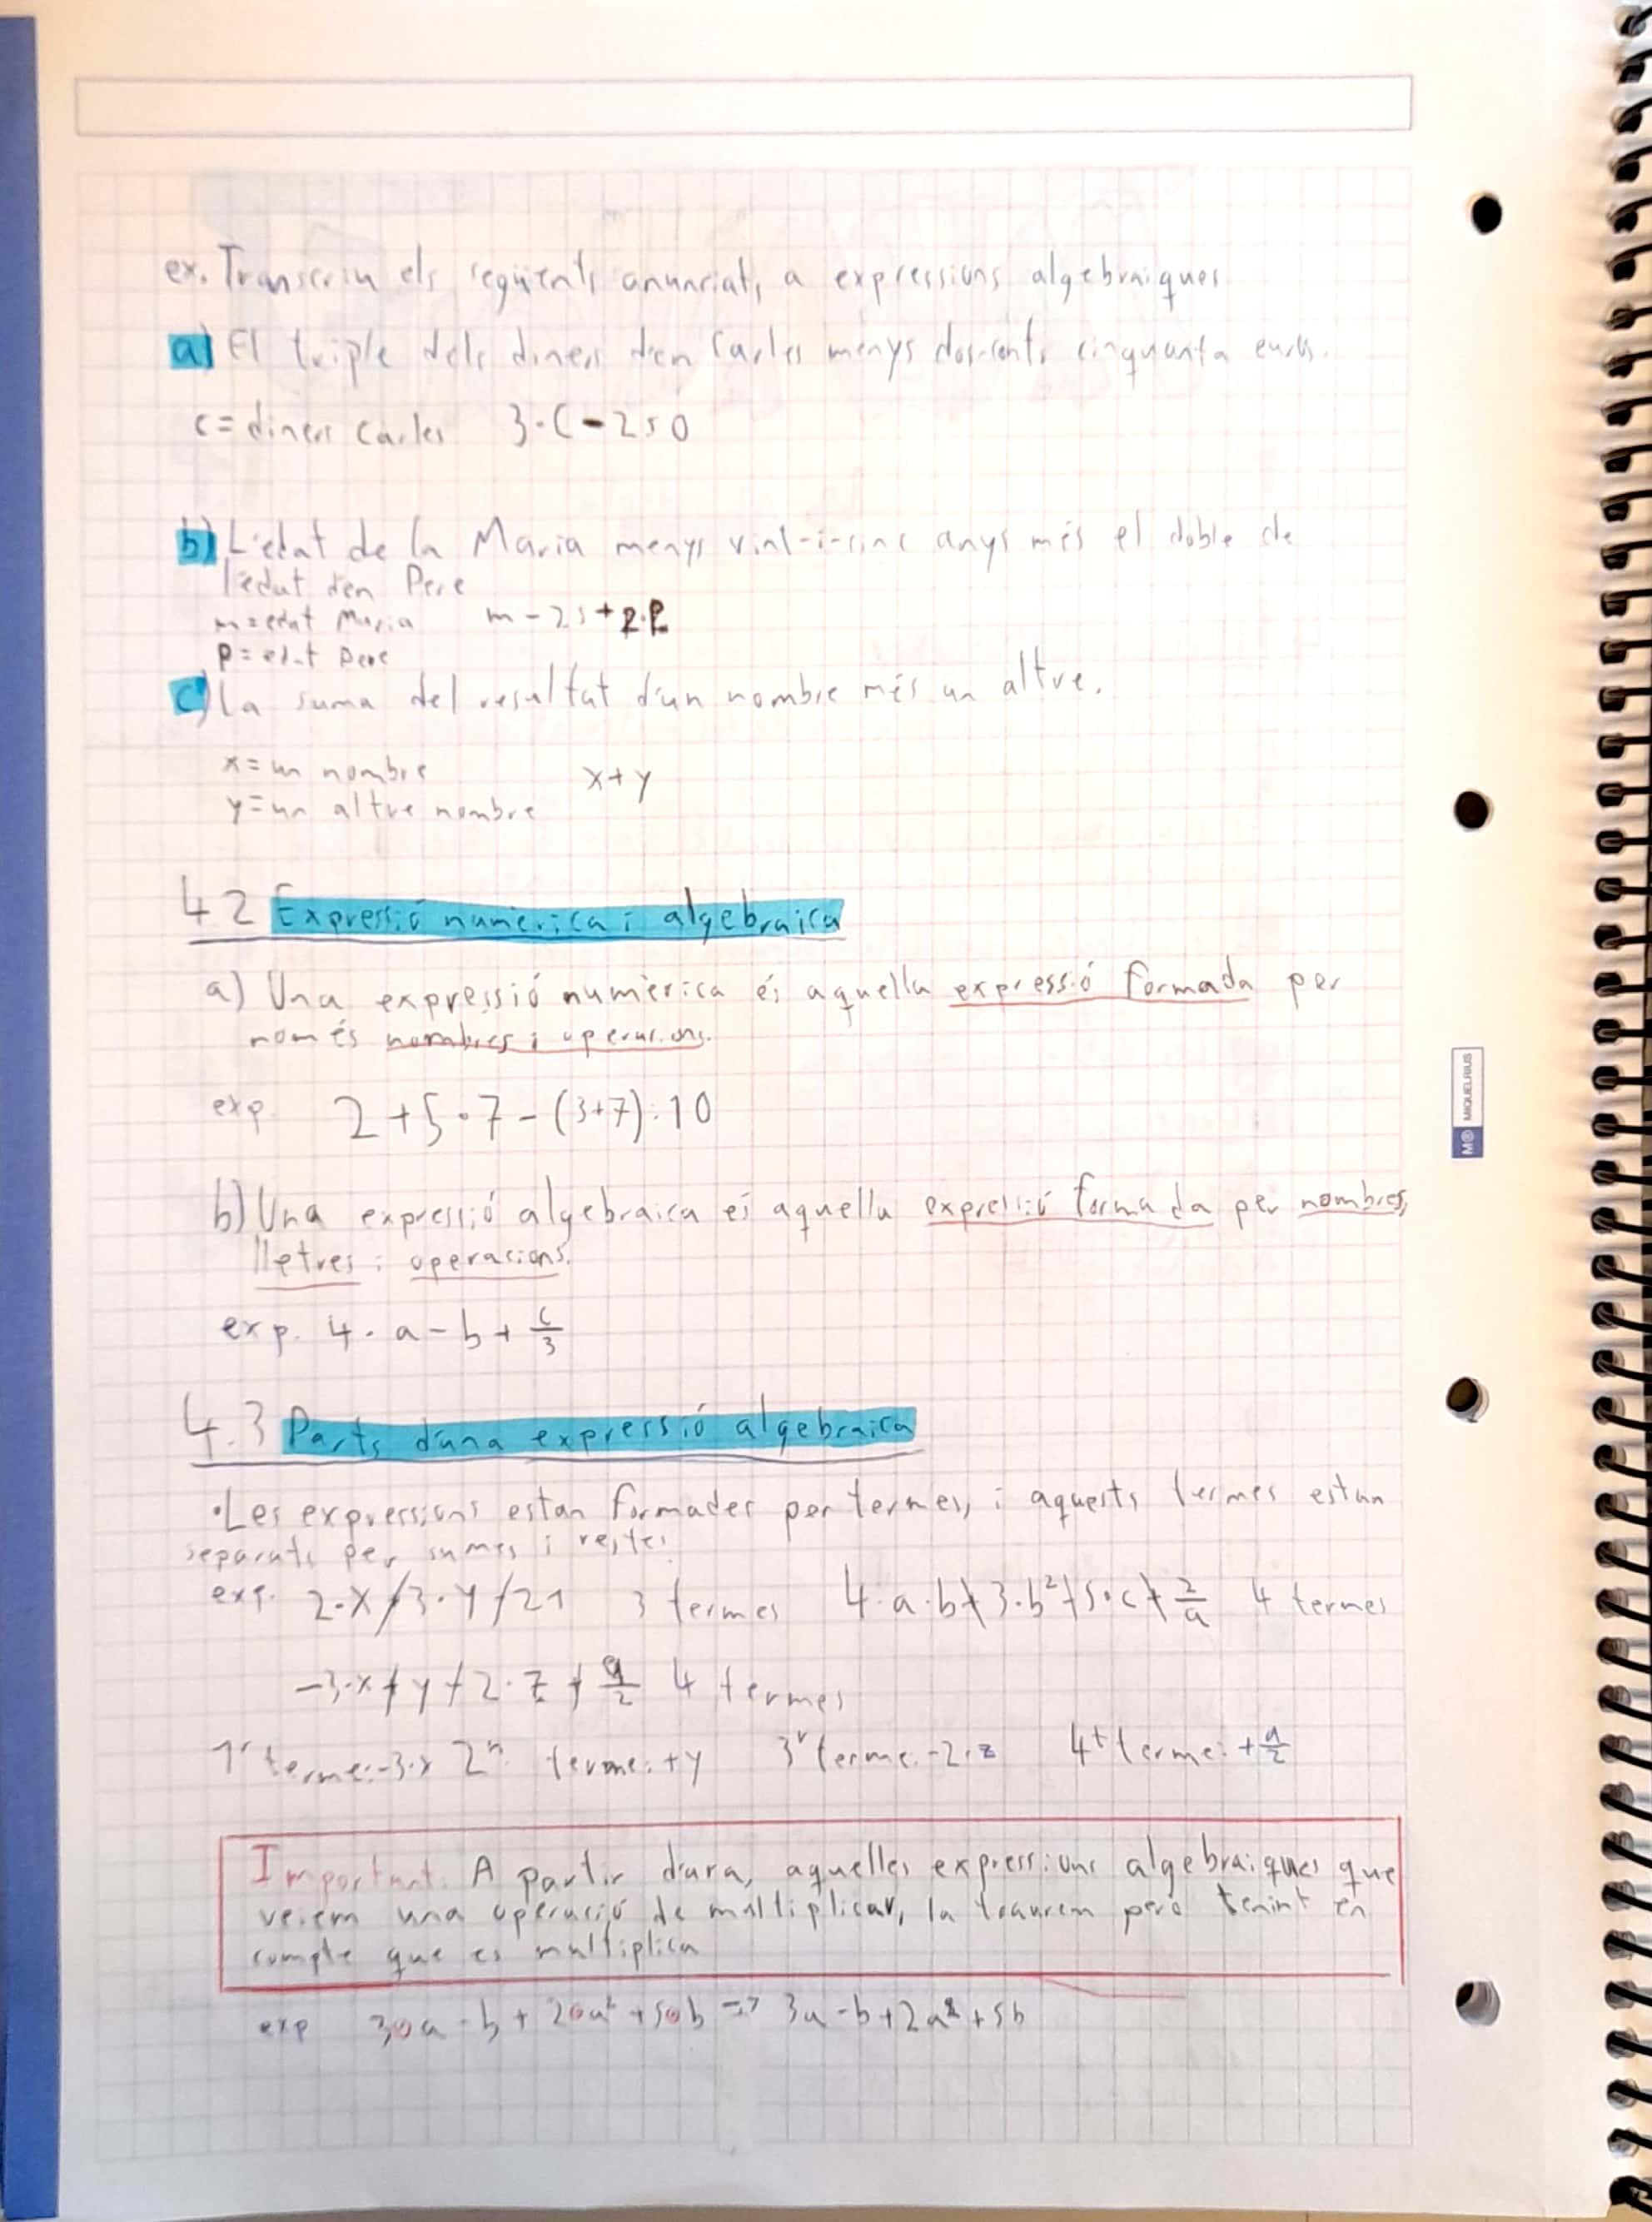 ex. Transcriu els següents anunciats a expressions algebraiques
a) El triple dels diners d'en Carles menys dos-cents cinquanta euros.
c = diners Carles 3·C-250
b) L'edat de la Maria menys vint-i-cinc anys més el doble de
l'edat d'en Pere
m = edat Maria m-25+2·P
p = edat Pere
c) La suma del resultat d'un nombre més un altre.
x = un nombre x+y
y = un altre nombre
4.2 Expressió numèrica i algebraica
a) Una expressió numèrica és aquella expressió formada per
només nombres i operacions.
exp. 2+5·7-(3+7):10
b) Una expressió algebraica és aquella expressió formada per nombres,
lletres i operacions.
exp. 4·a-b+c/3
4.3 Parts d'una expressió algebraica
·Les expressions estan formades per termes, i aquests termes estan
separats per sumes i restes.
exp. 2·x/3·y/21 3 termes 4·a·b+3·b²+5·c+2/a 4 termes
-3·x+y-2·z+a/2 4 termes
1r terme: -3·x 2n terme: +y 3r terme: -2·z 4t terme: +a/2
Important. A partir d'ara, aquelles expressions algebraiques que
veiem una operació de multiplicar, la traurem però tenint en
compte que es multiplica
exp 3·a-b+2·a²+5·b => 3a-b+2a²+5b
M® MIQUELRIUS